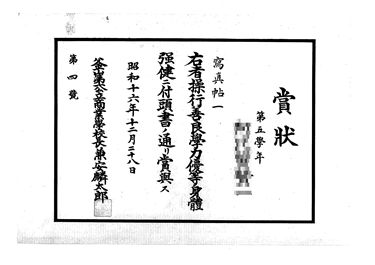 賞狀
第五學年
寫眞帖一
右者操行善良學力優等身體
强健ニ付頭書ノ通リ賞與ス
昭和十六年十二月二十八日
釜山第公立商業學校長兼安麟太郎
第四號